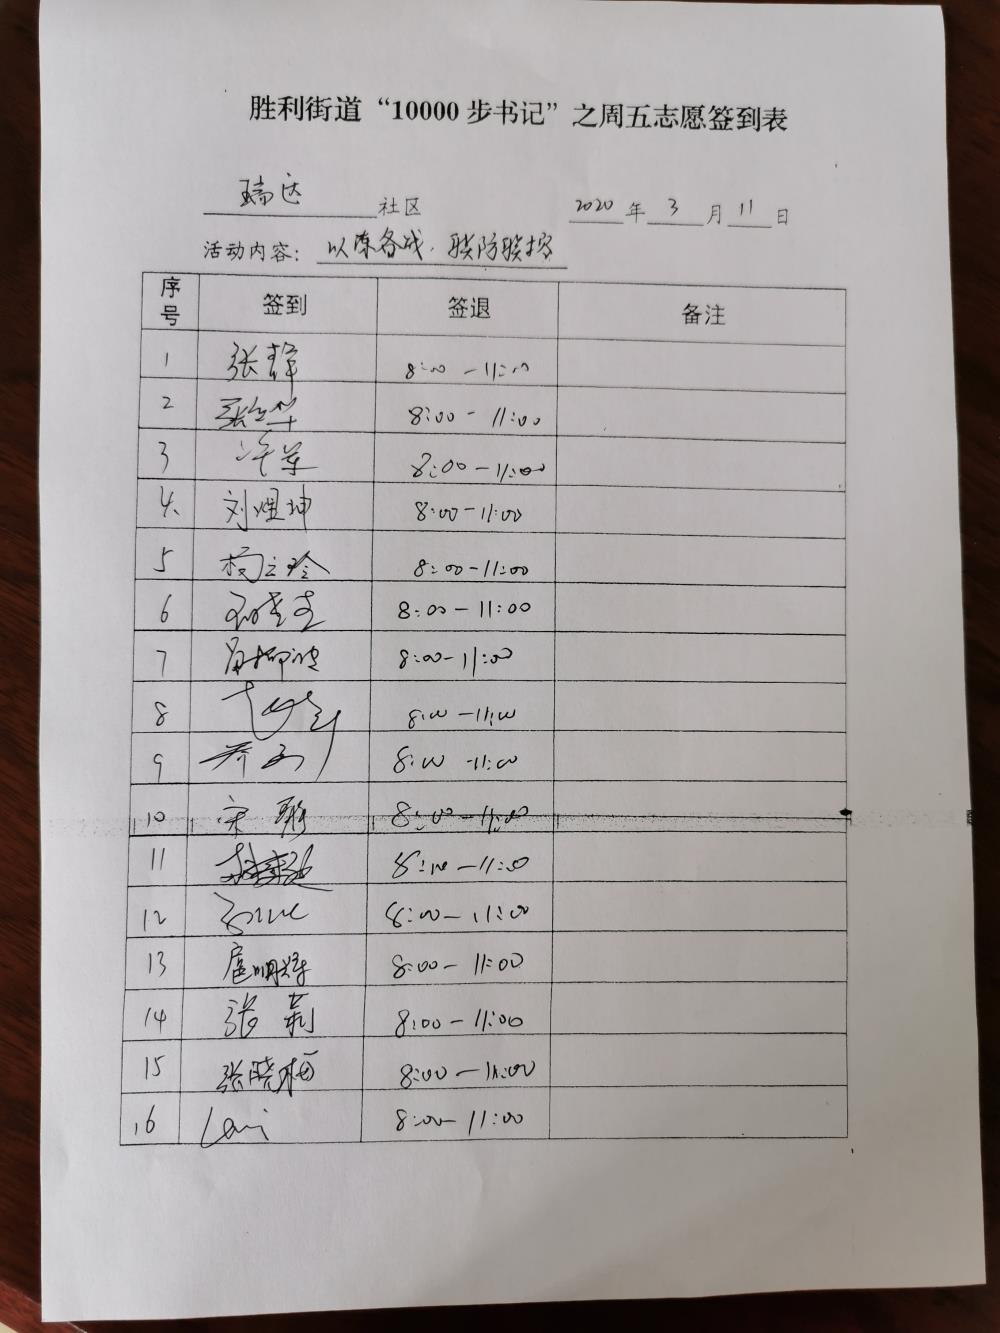 胜利街道“10000步书记”之周五志愿签到表
瑞达社区 2020年3月11日
活动内容：以练备战，联防联控
序号 签到 签退 备注
1 张静 8:00-11:00
2 8:00-11:00
3 8:00-11:00
4、刘煜坤 8:00-11:00
5 杨立玲 8:00-11:00
6 8:00-11:00
7 8:00-11:00
8 8:00-11:00
9 8:00-11:00
10 宋 8:00-11:00
11 8:00-11:00
12 8:00-11:00
13 扈明辉 8:00-11:00
14 张莉 8:00-11:00
15 张晓梅 8:00-11:00
16 8:00-11:00